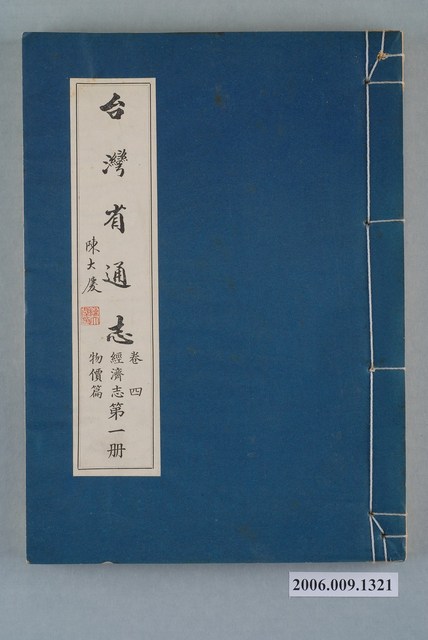 台灣省通志
卷四
經濟志
物價篇
第一册
陳大慶
2006.009.1321